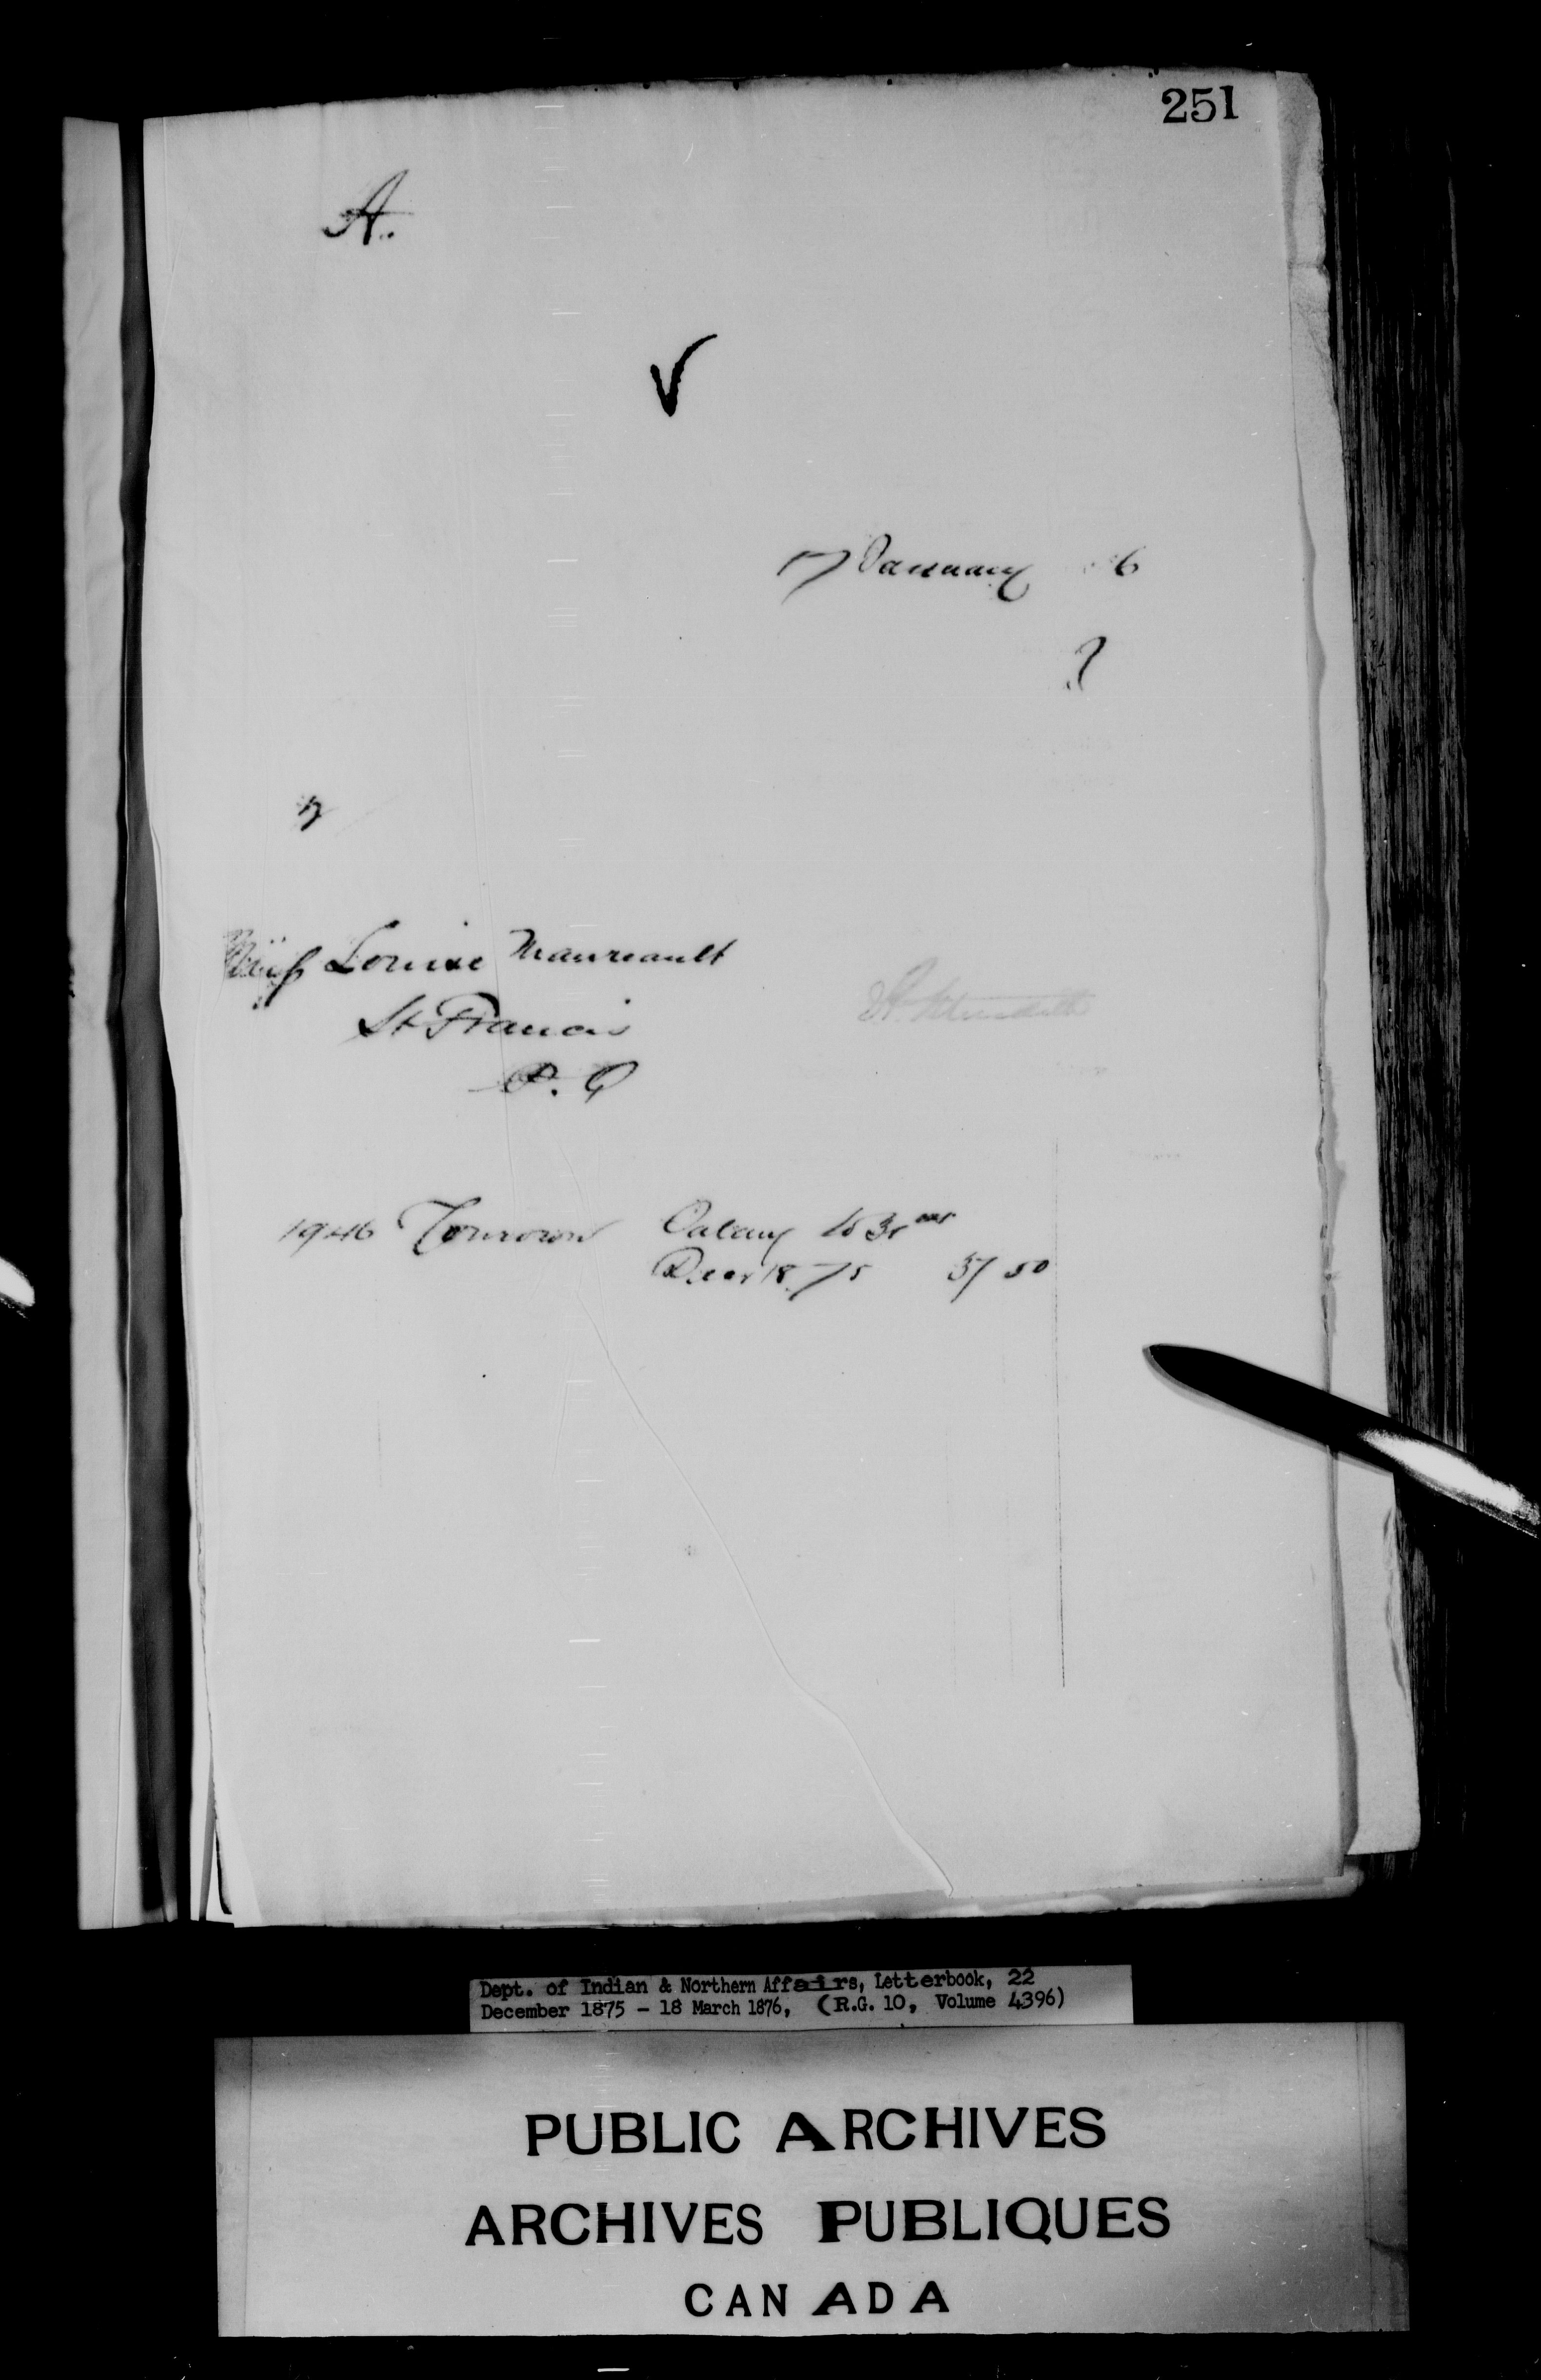 251
A.
✓
17 January 6
Miss Louise Maurault
St Francis
P. Q
1946 Tourown Salary to 31
Decer 1875 37 50
Dept. of Indian & Northern Affairs, Letterbook, 22
December 1875 - 18 March 1876, (R.G. 10, Volume 4396)
PUBLIC ARCHIVES
ARCHIVES PUBLIQUES
CANADA